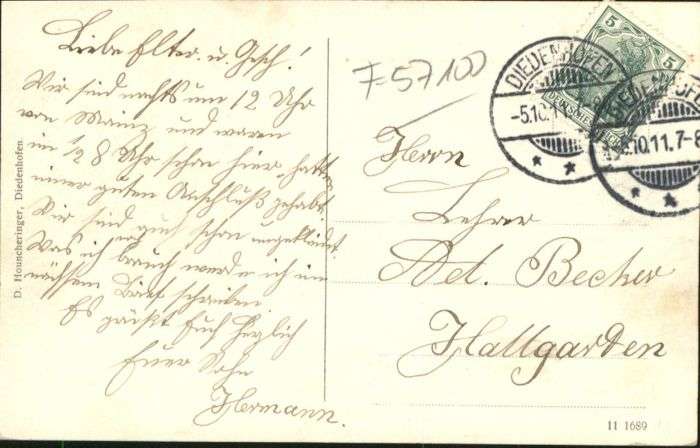 Liebe Elter. u. Gesch!
Wir sind nachts um 12 Uhr
von Mainz und waren
im 1/2 8 Uhr schon hier, hatten
immer guten Anschluß gehabt.
Wir sind auch schon eingekleidet.
Was ich brauch werde ich im
nächsten Brief schreiben
Es grüßt Euch herzlich
Euer Sohn
Hermann.
D. Houscheringer, Diedenhofen
F-57100
5
5
DIEDENHOFEN
-5.10.11
DIEDENHOFEN
.10.11.7-8
Herrn
Lehrer
Ad. Becher
Hallgarden
11 1689